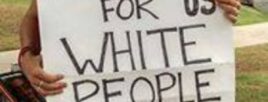 FOR US
WHITE
PEOPLE